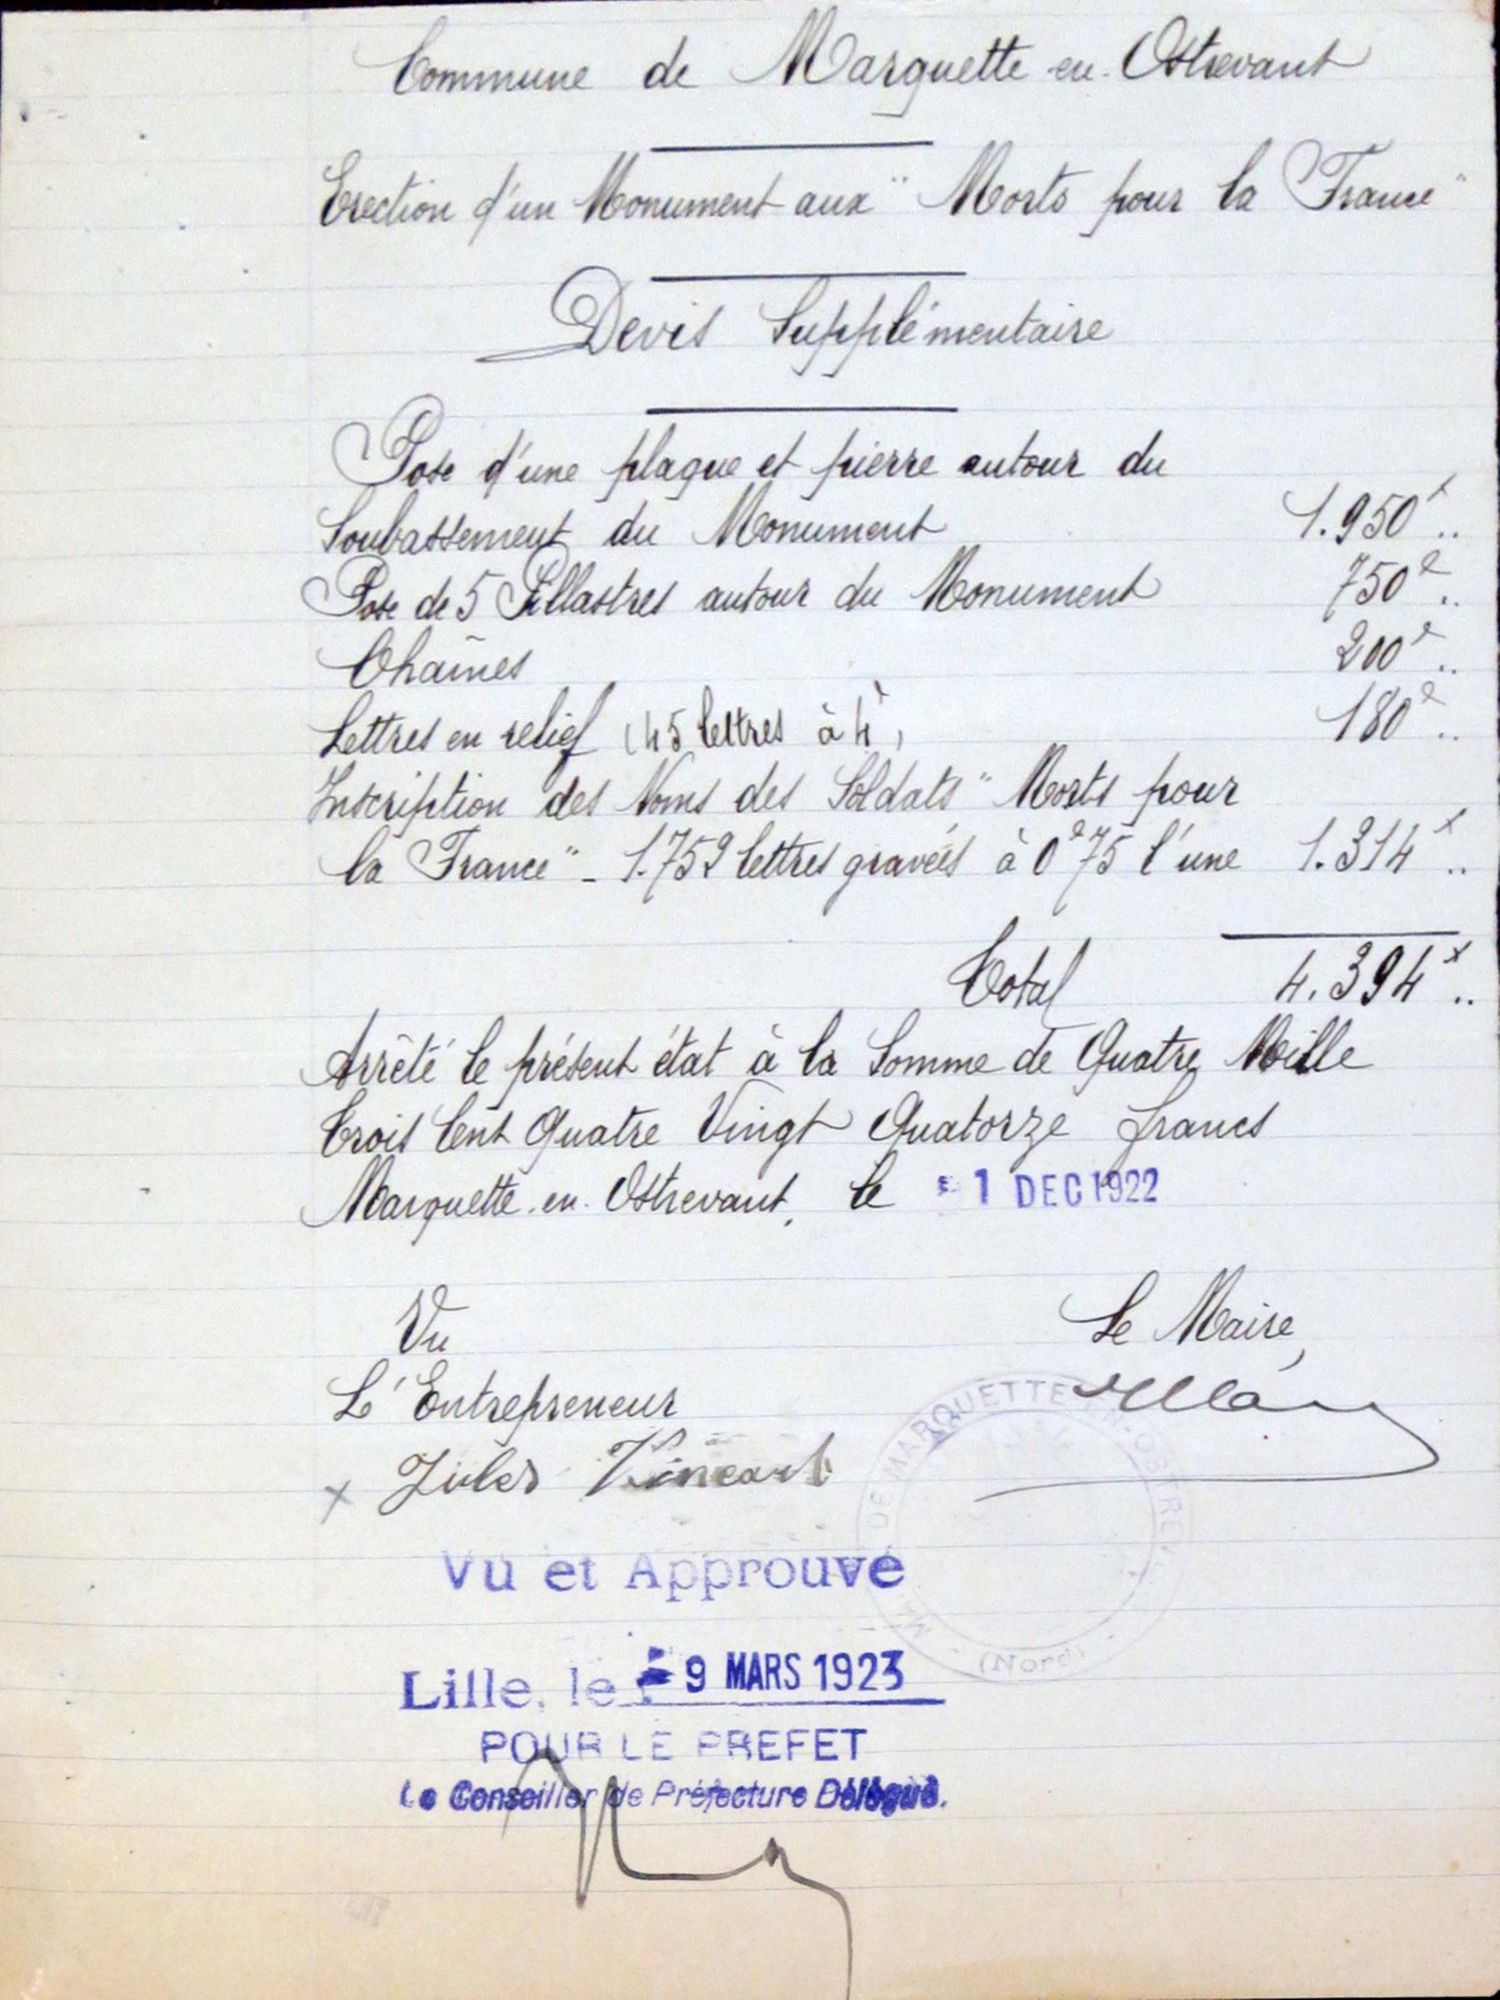 Commune de Marquette-en-Ostrevant
Erection d'un Monument aux "Morts pour la France"
Devis Supplémentaire
Pose d'une plaque et pierre autour du
Soubassement du Monument 1.950f..
Pose de 5 Pillastres autour du Monument 750f..
Chaînes 200f..
Lettres en relief (45 lettres à 4f) 180f..
Inscription des Noms des Soldats "Morts pour
la France" - 1.752 lettres gravées à 0f75 l'une 1.314f..
Total 4.394f..
Arrêté le présent état à la Somme de Quatre Mille
Trois Cent Quatre Vingt Quatorze francs
Marquette-en-Ostrevant, le -1 DEC 1922
Vu Le Maire,
L'Entrepreneur
x Jules
DE MARQUETTE EN OSTREV
(Nord)
Vu et Approuvé
Lille, le -9 MARS 1923
POUR LE PREFET
Le Conseiller de Préfecture Délégué.